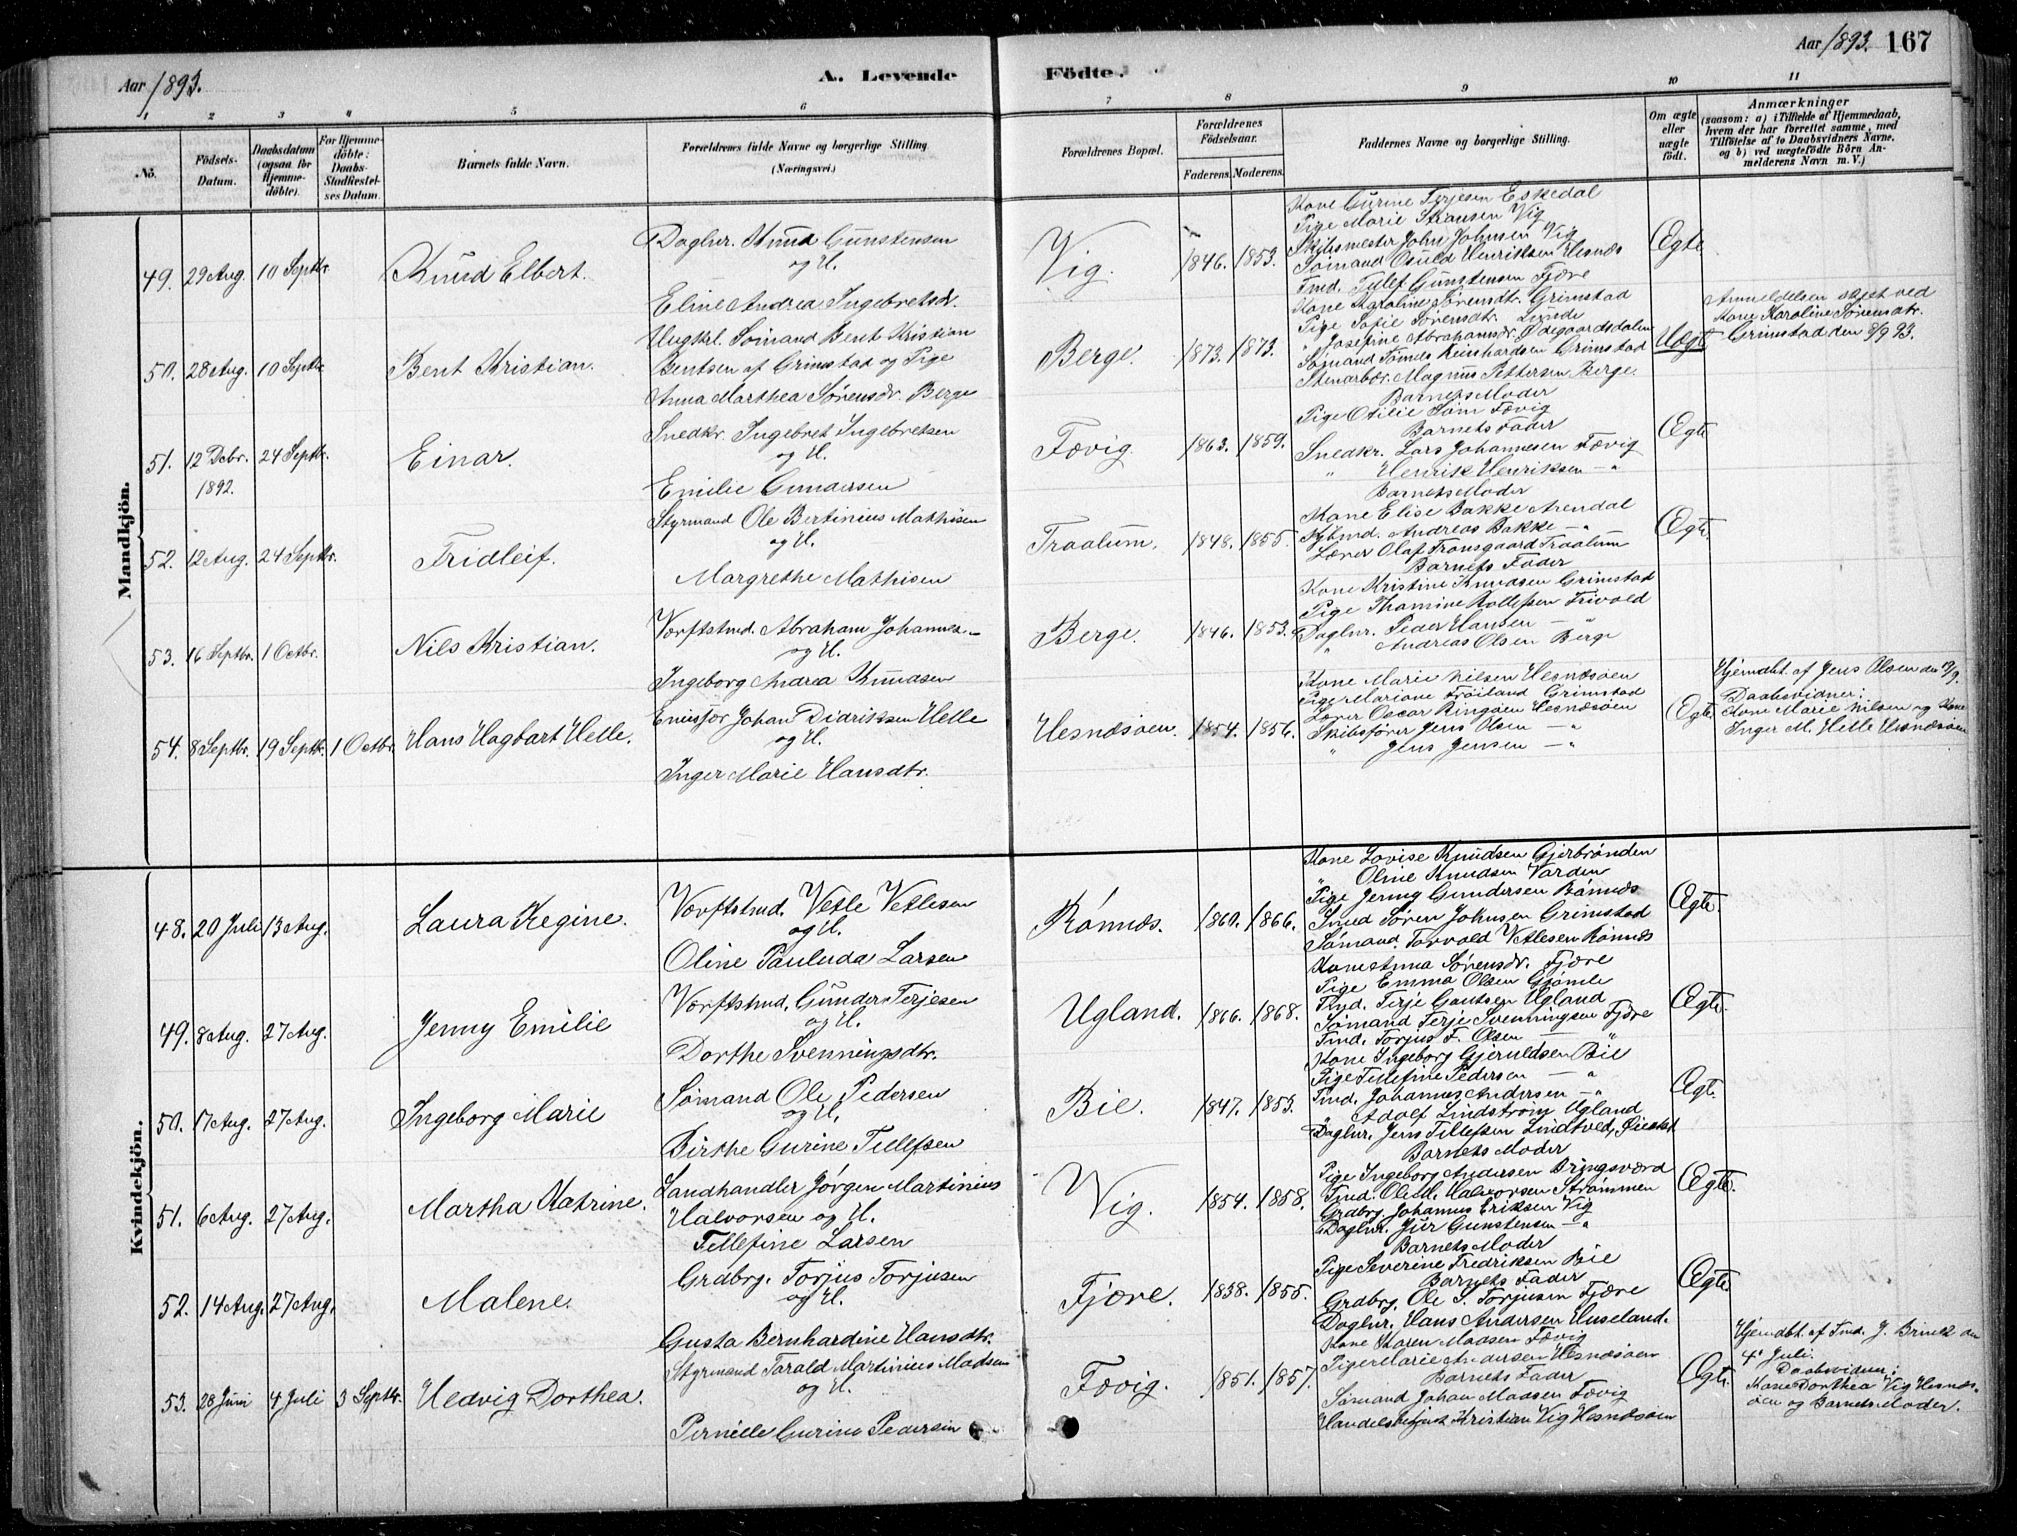 Aar 1893.
A. Levende
Födte.
Aar 1893. 167
1 2 3 4 5 6 7 8 9 10 11
No.
Födsels-Datum.
Daabsdatum (ogsaa for Hjemme-döbte).
For Hjemme-döbte: Daabs-Stadfæstelses Datum.
Barnets fulde Navn.
Forældrenes fulde Navne og borgerlige Stilling. (Næringsvei.)
Forældrenes Bopæl.
Forældrenes Födselsaar.
Faderens. Moderens.
Faddernes Navne og borgerlige Stilling.
Om ægte eller uægte födt.
Anmærkninger
(saasom: a) i Tilfælde af Hjemmedaab, hvem der har forrettet samme, med Tilföielse af to Daabsvidners Navne, og b) ved uægtefödte Börn Anmelderens Navn m. V.)
Mandkjön.
49. 29 Aug. 10 Septbr. Knud Elbert.
Daglnr. Knud Gunstensen
og H.
Eline Andrea Ingebretsdr.
Vig. 1846. 1853.
Kone Gurine Terjesen Eskedal
Pige Marie Stransen Vig
Skibsmester John Johnsen Vig
Sømand Osuld Henriksen Hesnæs
Fmd. Tellef Gunstensen Fjære
Ægte
50. 28 Aug. 10 Septbr. Bent Kristian.
Ungkrl. Sømand Bent Kristian
Bentsen af Grimstad og Pige
Anna Marthea Sørensdr. Berge
Berge. 1873. 1873.
Kone Karoline Sørensdtr. Grimstad
Pige Sofie Sørensdtr. Lunde
" Josefine Abrahamsdr. Ødegaardsdalen
Sømand Tønnes Reinhardsen Grimstad
Stenarbdr. Magnus Pettersen Berge.
Uægt
Anmeldelsen skjet ved
Kone Karoline Sørensdtr.
Grimstad den 8/9 93.
51. 12 Decbr. 1892. 24 Septbr. Einar.
Snedkr. Ingebret Ingebretsen
og H.
Emilie Gundersen
Fævig. 1863. 1859.
Barnets Moder
Pige Otilie Søm Fævig
Barnets Fader
Snedkr. Lars Johannesen Fævig
" Henrik Henriksen — "
Ægte
52. 12 Aug. 24 Septbr. Fridleif.
Styrmand Ole Bertinius Mathisen
og H.
Margrethe Mathisen
Traalum. 1848. 1855.
Barnets Moder
Kone Elise Bakke Arendal
Kjøbmd. Andreas Bakke — "
Lærer Olaf Fransgaard Traalum
Barnets Fader
Ægte
53. 16 Septbr. 1 Octbr. Nils Kristian.
Værftstmd. Abraham Johannes-
og H.
Ingeborg Andrea Knudsen
Berge. 1846. 1853.
Kone Kristine Knudsen Grimstad
Pige Thomine Rollefsen Frivold
Daglnr. Peder Hansen — "
" Andreas Olsen Berge
54. 8 Septbr. 19 Septbr. 1 Octbr. Hans Hagbart Helle.
Enkesfør Johan Didriksen Helle
og H.
Inger Marie Hansdtr.
Hesnæsøen. 1854. 1856.
Kone Marie Nilsen Hesnæsøen
Pige Mariane Frøiland Grimstad
Lærer Oscar Ringøen Hesnæsøen
Skibsfører Jens Olsen — "
" Jens Jensen — "
Ægte
Hjemdbt. af Jens Olsen den 19/9.
Daabsvidner:
Kone Marie Nilsen og Kone
Inger M. Helle Hesnæsøen
Kvindekjön.
48. 20 Juli 13 Aug. Laura Regine.
Værftstmd. Vetle Vetlesen
og H.
Oline Pauluda Larsen
Rønnæs. 1860. 1866.
Kone Lovise Knudsen Gjerbrønden
" Oline Knudsen Varden
Pige Jenny Gundersen Rønnæs
Smed Søren Johnsen Grimstad
Sømand Torvald Vetlesen Rønnæs
Ægte.
49. 8 Aug. 27 Aug. Jenny Emilie
Værftstmd. Gunder Terjesen
og H.
Dorthe Svenningsdtr.
Ugland. 1866. 1868.
Kone Anna Sørensdr. Fjære
Pige Emma Olsen Gjømle
Fmd. Terje Gautsen Ugland
Sømand Terje Svenningsen Fjære
Fmd. Torjus F. Olsen — "
Ægte.
50. 17 Aug. 27 Aug. Ingeborg Marie
Sømand Ole Pedersen
og H.
Birthe Gurine Tellefsen
Bie. 1847. 1853.
Kone Ingeborg Gjeruldsen Bie
Pige Tellefine Pedersen — "
Fmd. Johannes Andersen — "
" Adolf Lindstrøm Ugland
Daglnr. Jens Tellefsen Lindtved, Øiestad
Ægte.
51. 6 Aug. 27 Aug. Martha Katrine.
Landhandler Jørgen Martinius
Halvorsen og H.
Tellefine Larsen
Vig. 1854. 1858.
Barnets Moder
Pige Ingeborg Andersen Bringsværd
Fmd. Ole H. Halvorsen Strømmen
Grdbrg. Johannes Eriksen Vig
Daglnr. Jur Gunstensen — "
Ægte.
52. 14 Aug. 27 Aug. Malene.
Grdbrg. Torjus Torjusen
og H.
Gusta Bernhardine Hansdtr.
Fjære. 1838. 1855.
Barnets Moder
Pige Severine Fredriksen Bie
Barnets Fader
Grdbrg. Ole S. Torjusen Fjære
Daglnr. Hans Andersen Huseland.
Ægte.
53. 28 Juni 4 Juli 3 Septbr. Hedvig Dorthea.
Styrmand Tarald Martinius Madsen
og H.
Pernille Gurine Pedersen
Fævig. 1851. 1857.
Kone Karen Maasen Fævig
Pige Marie Andersen Hesnæsøen
Barnets Fader
Sømand Johan Maasen Fævig
Handelsbetjent Kristian Vig Hesnæsøen
Ægte.
Hjemdbt. af Fmd. J. Brinck den
4' Juli.
Daabsvidner:
Kone Dorthea Vig Hesnæs-
øen og Barnets Moder.